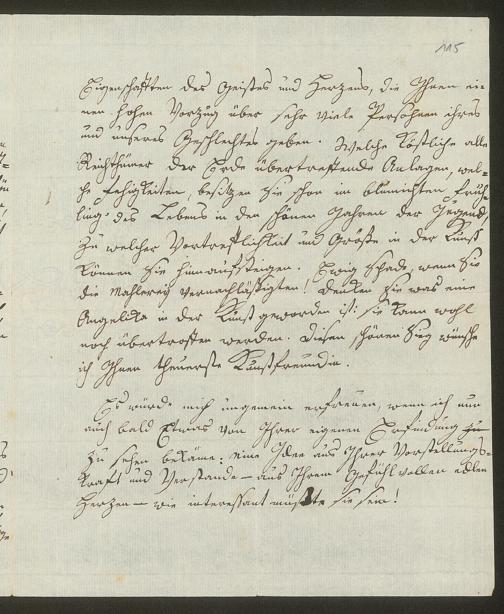 115
Eigenschafften des Geistes und Herzens, die Ihnen ei-
nen hohen Vorzug über sehr viele Persohnen ihres
und unseres Geschlechtes geben. Welche köstliche alle
Reichthümer der Erde übertreffende Anlagen, wel-
che Fehigkeiten, besitzen Sie schon im blumichten Früh-
ling des Lebens in den schönen Jahren der Jugend,
zu welcher Vortrefflichkeit und Größe in der Kunst
können Sie hinaufsteigen! Ewig schade, wenn Sie
die Mahlerey vernachlässigten! Denken Sie was eine
Angelika in der Kunst geworden ist: sie kann wohl
noch übertroffen werden. Diesen schönen Sieg wünsche
ich Ihnen theuerste Kunstfreundin.
Es würde mich ungemein erfreuen, wenn ich nur
auch bald Etwas von Ihrer eigenen Erfindung
zu sehen bekäme: eine Idee aus Ihrer Vorstellungs-
kraft und Verstande – aus Ihrem Gefühlvollen edlen
Herzen – wie interessant müßte sie sein!